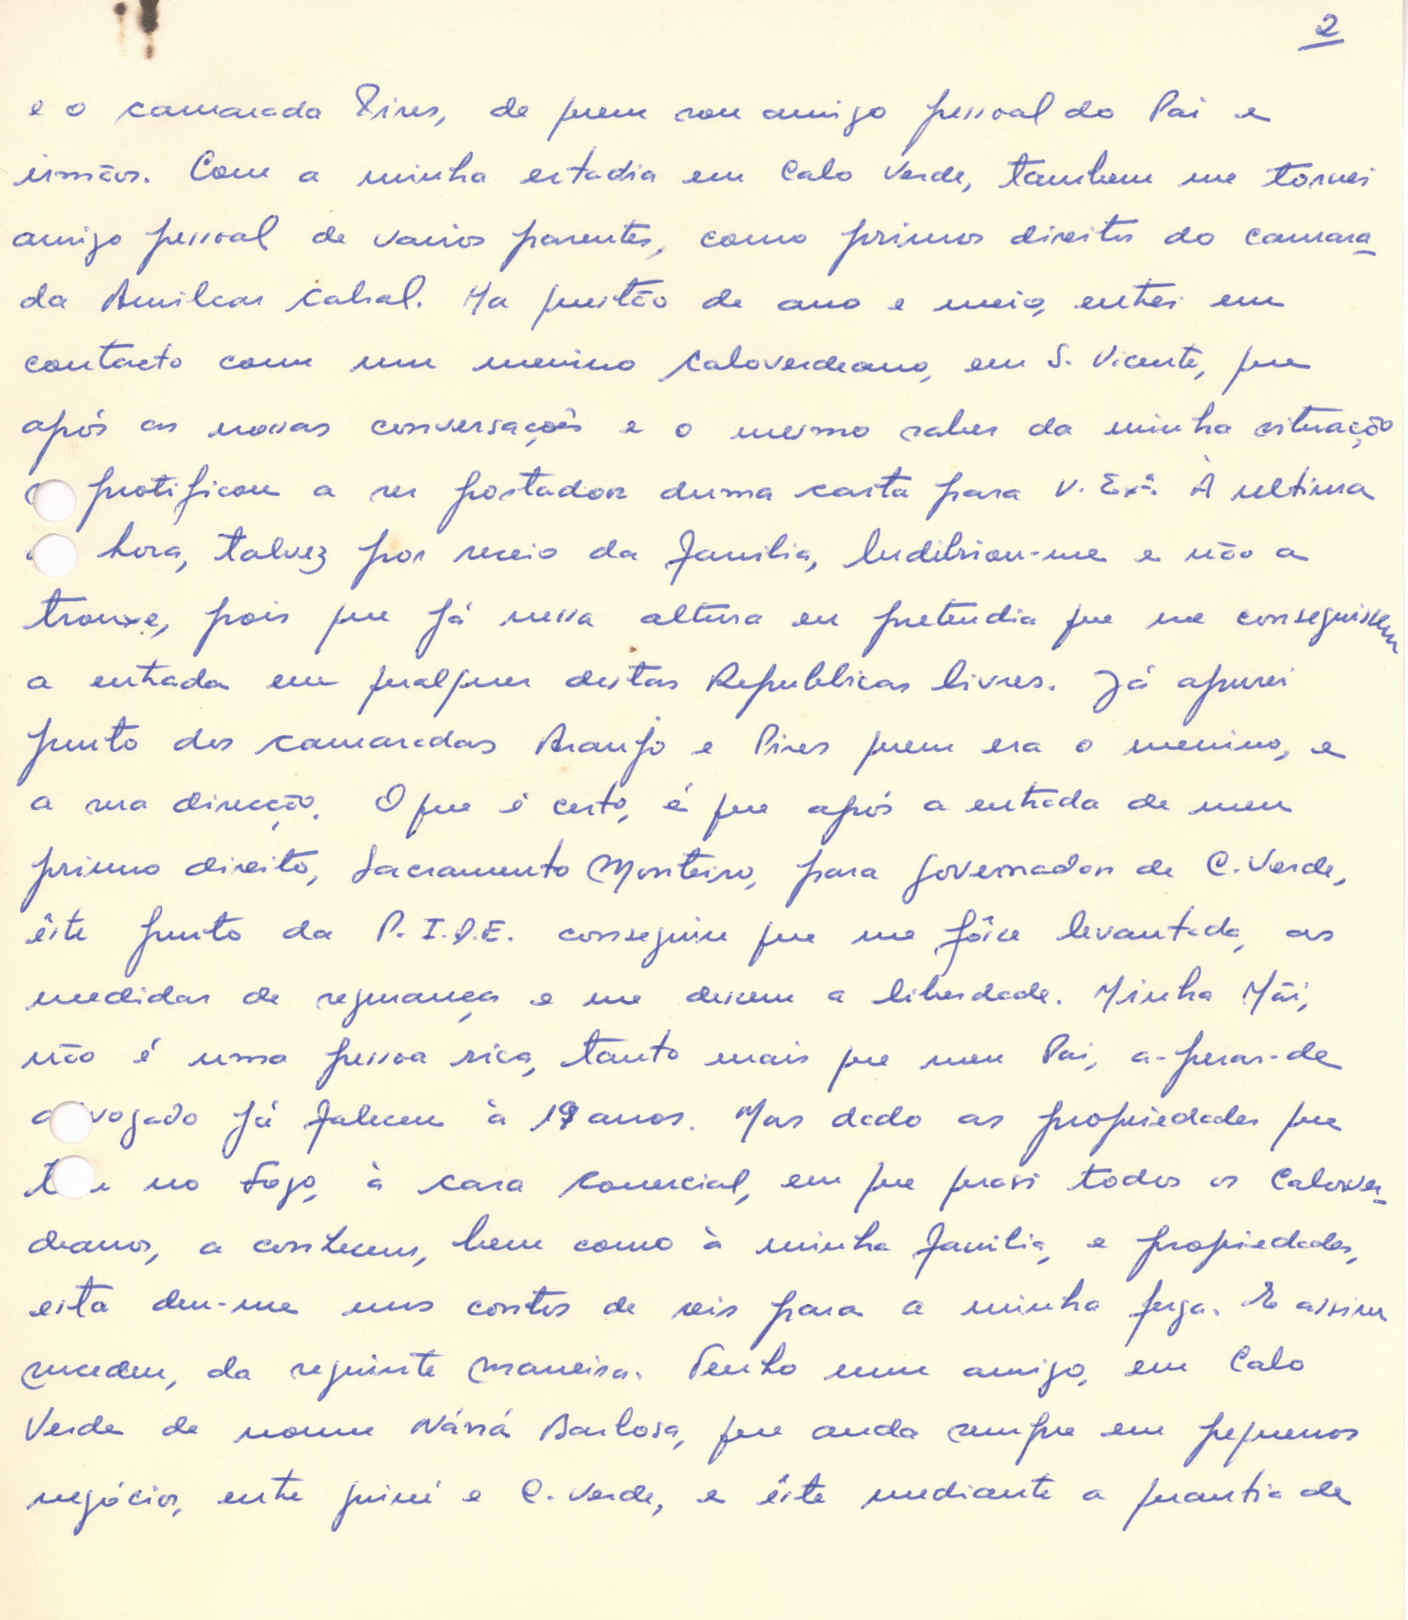 2
e o camarada Pires, de quem sou amigo pessoal do Pai e
irmãos. Com a minha estadia em Cabo Verde, tambem me tornei
amigo pessoal de varios parentes, como primos direitos do camara-
da Amilcar Cabral. Ha questão de ano e meio, entrei em
contacto com um menino Caboverdeano, em S. Vicente, que
após as nossas conversações e o mesmo saber da minha situação
protificou a ser portador duma carta para V. Exª. À ultima
hora, talvez por receio da familia, ludibriou-me e não a
trouxe, pois que já nessa altura eu pretendia que me conseguissem
a entrada em qualquer destas Republicas livres. Já apurei
junto dos camaradas Araujo e Pires quem era o menino, e
a sua direcção. O que é certo, é que após a entrada de meu
primo direito, Sacramento Monteiro, para governador de C. Verde,
êste junto da P.I.D.E. conseguiu que me fôsse levantada, as
medidas de segurança e me dessem a liberdade. Minha Mãi,
não é uma pessoa rica, tanto mais que meu Pai, a-pesar-de
advogado já faleceu à 19 anos. Mas dado as propriedades que
no Fogo, à casa Comercial, em que quasi todos os Cabover-
deanos, a conhecem, bem como à minha familia, e propriedades,
esta deu-me uns contos de reis para a minha fuga. E assim
sucedeu, da seguinte maneira. Tenho um amigo, em Cabo
Verde de nome Nássá Barbosa, que anda sempre em pequenos
negócios, entre guiné e C. Verde, e êste mediante a quantia de